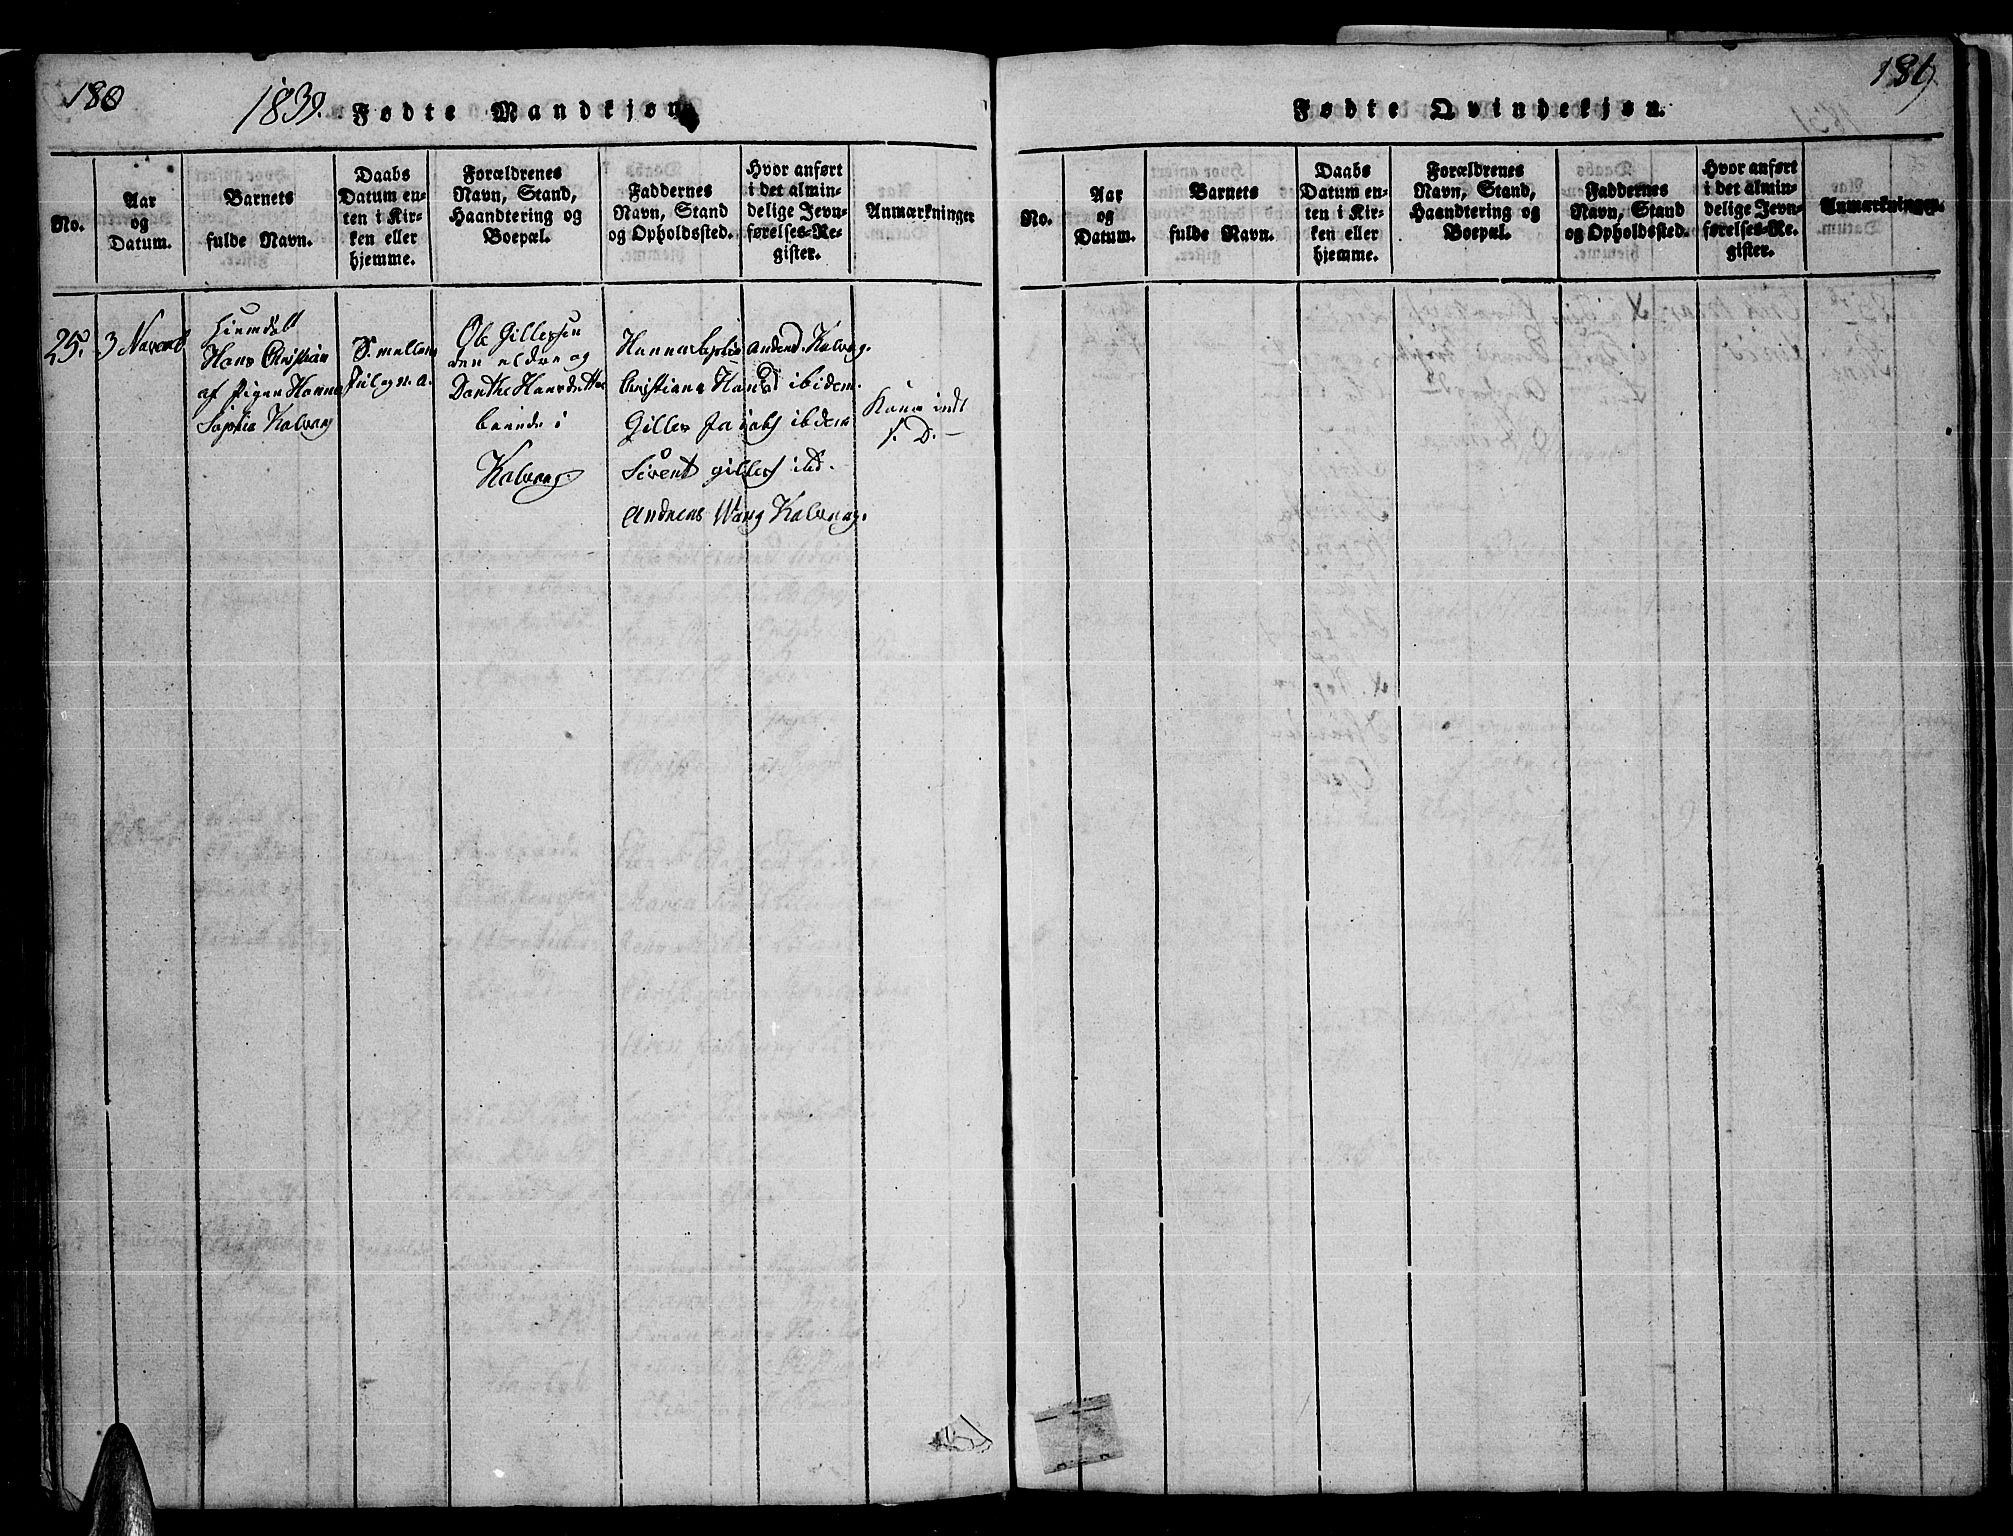 180
1839. Fødte Mandkjøn
No.
Aar
og
Datum.
Barnets
fulde Navn.
Daabs
Datum en-
ten i Kir-
ken eller
hjemme.
Forældrenes
Navn, Stand,
Haandtering og
Boepæl.
Faddernes
Navn, Stand
og Opholdssted.
Hvor anført
i det almin-
delige Jevn-
førelses-Re-
gister.
Anmærkninger
25.
3 Novemb
Hiemdøbt
Hans Christian
af Pigen Hanna
Sophia Kalvaag
S. mellem
Juul og n. a.
Ole Gillessen
den eldre og
Dorthe Hansdatter
boende i
Kalvaag
Hanna Sophia Andersd. Kalvag.
Christiana Hansd ibidem.
Gilles Jacobs ibidem
Sivert Gilless ibid.
Andreas Wang Kalvaag.
Kone indt
s. D. –
189
Fødte Qvindekjøn.
No.
Aar
og
Datum.
Barnets
fulde Navn.
Daabs
Datum en-
ten i Kir-
ken eller
hjemme.
Forældrenes
Navn, Stand,
Haandtering og
Boepæl.
Faddernes
Navn, Stand
og Opholdssted.
Hvor anført
i det almin-
delige Jevn-
førelses-Re-
gister.
Anmærkninger.